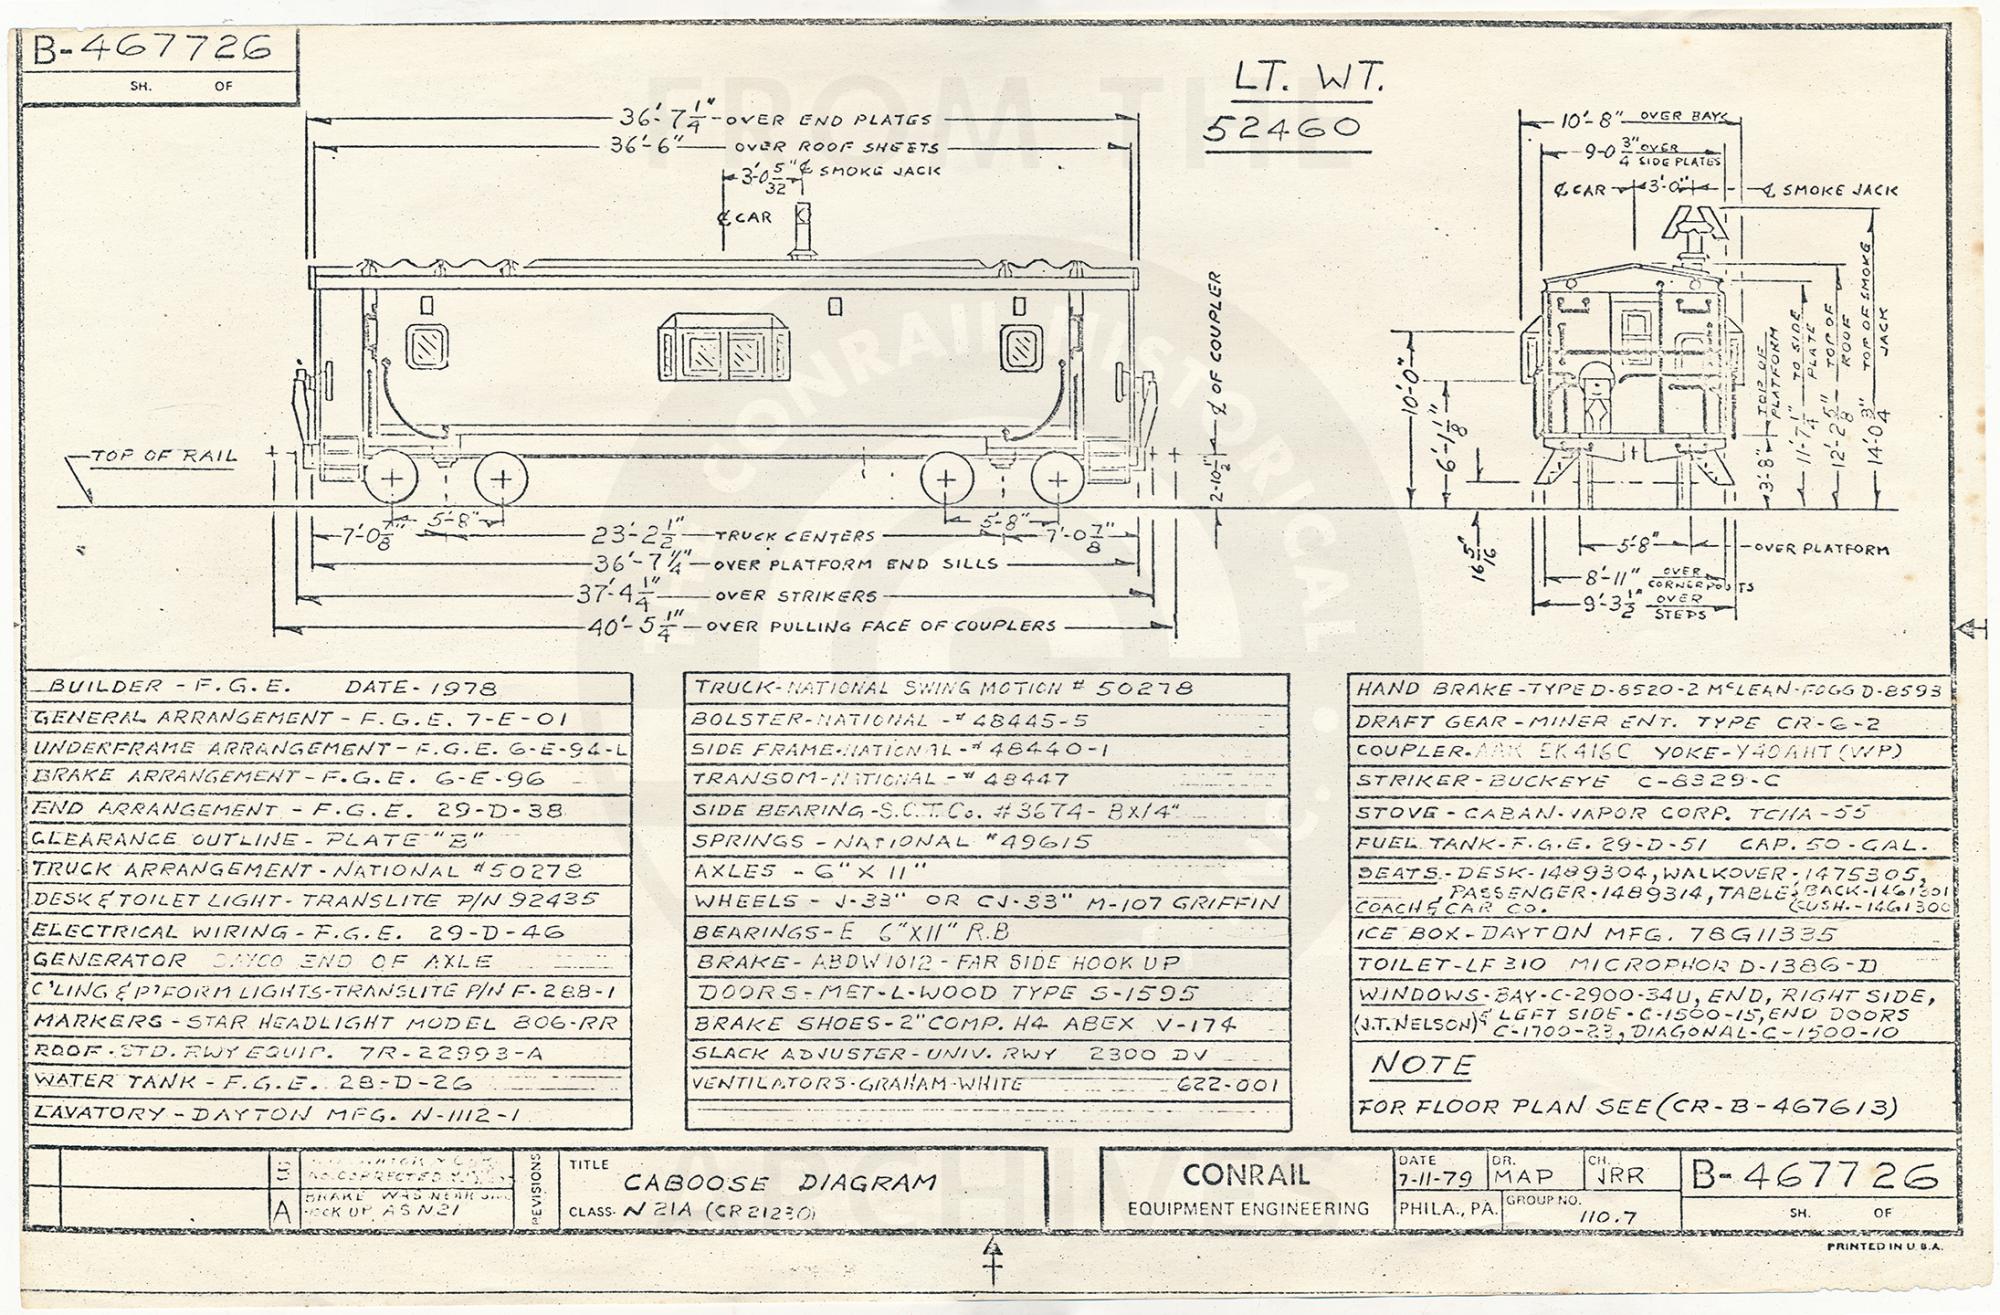 B-467726
SH. OF
LT. WT.
52460
36'-7 1/4" OVER END PLATES
36'-6" OVER ROOF SHEETS
3'-0 5/32" ℄ SMOKE JACK
℄ CAR
TOP OF RAIL
2'-10 1/2" ℄ OF COUPLER
5'-8" 5'-8"
7'-0 7/8" 23'-2 1/2" TRUCK CENTERS 7'-0 7/8"
36'-7 1/4" OVER PLATFORM END SILLS
37'-4 1/4" OVER STRIKERS
40'-5 1/4" OVER PULLING FACE OF COUPLERS
10'-8" OVER BAYS
9'-0 3/4" OVER SIDE PLATES
℄ CAR 3'-0" ℄ SMOKE JACK
10'-0"
6'-1 1/8"
16 5/16
3'-8" TOP OF PLATFORM
11'-7 1/4" TO SIDE PLATE
12'-2 5/8" TOP OF ROOF
14'-0 3/4" TOP OF SMOKE JACK
5'-8" OVER PLATFORM
8'-11" OVER CORNERPOSTS
9'-3 1/2" OVER STEPS
BUILDER - F.G.E. DATE - 1978
GENERAL ARRANGEMENT - F.G.E. 7-E-01
UNDERFRAME ARRANGEMENT - F.G.E. 6-E-94-L
BRAKE ARRANGEMENT - F.G.E. 6-E-96
END ARRANGEMENT - F.G.E. 29-D-38
CLEARANCE OUTLINE - PLATE "B"
TRUCK ARRANGEMENT - NATIONAL #50278
DESK & TOILET LIGHT - TRANSLITE P/N 92435
ELECTRICAL WIRING - F.G.E. 29-D-46
GENERATOR DAYCO END OF AXLE
C'LING & P'FORM LIGHTS-TRANSLITE P/N F-288-1
MARKERS - STAR HEADLIGHT MODEL 806-RR
ROOF - STD. RWY EQUIP. 7R-22993-A
WATER TANK - F.G.E. 28-D-26
LAVATORY - DAYTON MFG. N-1112-1
TRUCK-NATIONAL SWING MOTION # 50278
BOLSTER-NATIONAL - # 48445-5
SIDE FRAME-NATIONAL - # 48440-1
TRANSOM-NATIONAL - # 48447
SIDE BEARING - S.C.T.Co. #3674 - 8X14"
SPRINGS - NATIONAL #49615
AXLES - 6" X 11"
WHEELS - J-33" OR CJ-33" M-107 GRIFFIN
BEARINGS - E 6"X11" R.B
BRAKE - ABDW 1012 - FAR SIDE HOOK UP
DOORS - MET-L-WOOD TYPE S-1595
BRAKE SHOES - 2" COMP. H4 ABEX V-174
SLACK ADJUSTER - UNIV. RWY 2300 DV
VENTILATORS - GRAHAM-WHITE 622-001
HAND BRAKE - TYPE D-8520-2 McLEAN-FOGG D-8593
DRAFT GEAR - MINER ENT. TYPE CR-6-2
COUPLER - EK416C YOKE - Y40AHT (WP)
STRIKER - BUCKEYE C-8329-C
STOVE - CABAN-VAPOR CORP. TCHA-55
FUEL TANK - F.G.E. 29-D-51 CAP. 50-GAL.
SEATS - DESK - 1489304, WALKOVER - 1475305,
PASSENGER - 1489314, TABLE, BACK - 1461301
COACH & CAR CO. CUSH. - 1461300
ICE BOX - DAYTON MFG. 78G11335
TOILET - LF 310 MICROPHOR D-1386-D
WINDOWS - BAY - C-2900-34U, END, RIGHT SIDE,
(J.T. NELSON) & LEFT SIDE - C-1500-15, END DOORS
C-1700-23, DIAGONAL - C-1500-10
NOTE
FOR FLOOR PLAN SEE (CR-B-467613)
A BRAKE WAS NEAR
UP AS N21
REVISIONS
TITLE CABOOSE DIAGRAM
CLASS- N 21A (CR21230)
CONRAIL
EQUIPMENT ENGINEERING
DATE 7-11-79 DR. MAP CH. JRR
PHILA., PA. GROUP NO. 110.7
B-467726
SH. OF
PRINTED IN U.S.A.
FROM THE
THE CONRAIL HISTORICAL
ARCHIVES